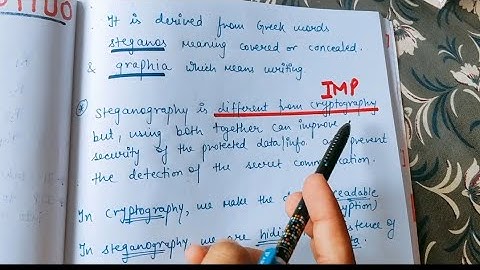 It is derived from Greek words
steganos meaning covered or concealed.
& graphia which means writing
IMP
Steganography is different from cryptography
but, using both together can improve
security of the protected data/info. prevent
the detection of the secret communication.
In cryptography, we make the readable
In steganography, we are hiding